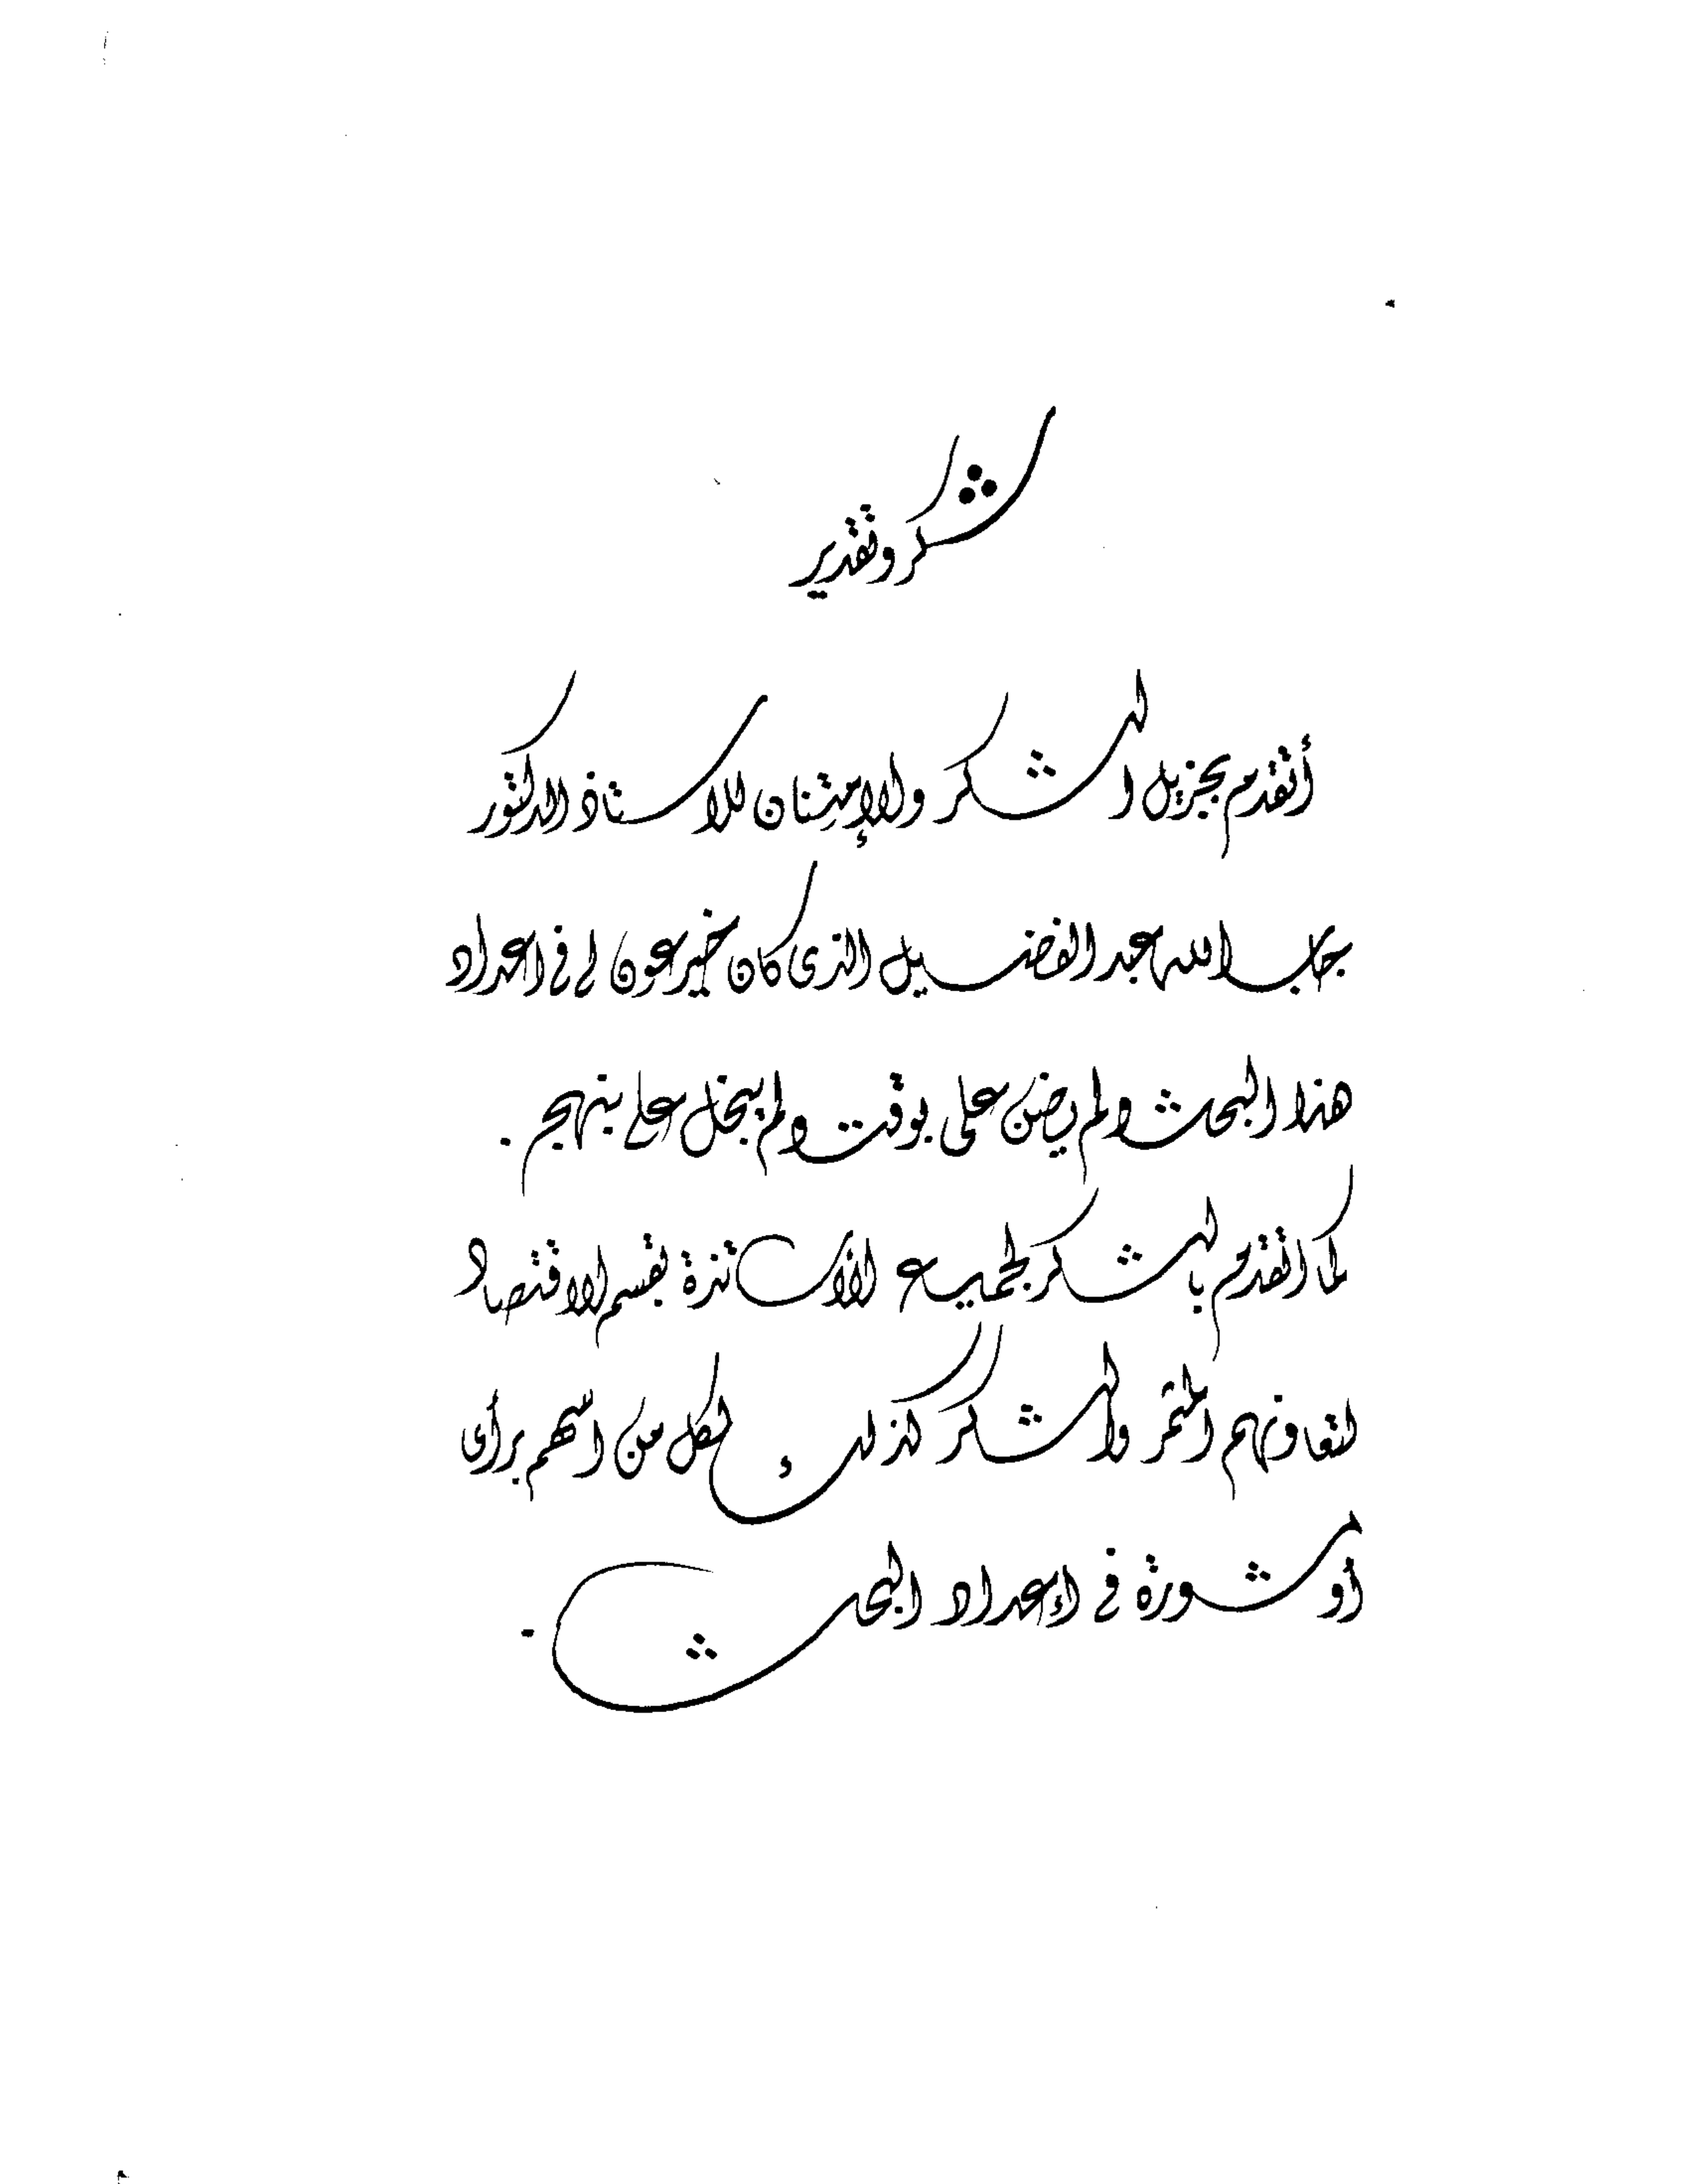 شكر وتقدير
أتقدم بجزيل الشكر والإمتنان للاستاذ الدكتور
جاب الله عبد الفضيل الذى كان خير عون لى فى اعداد
هذا البحث ولم يضن على بوقت ولم يبخل على بنهج .
كما اتقدم بالشكر لجميع الأساتذة بقسم الاقتصاد
لتعاونهم المثمر والشكر كذلك لكل من اسهم برأى
أو مشورة فى إعداد البحث .